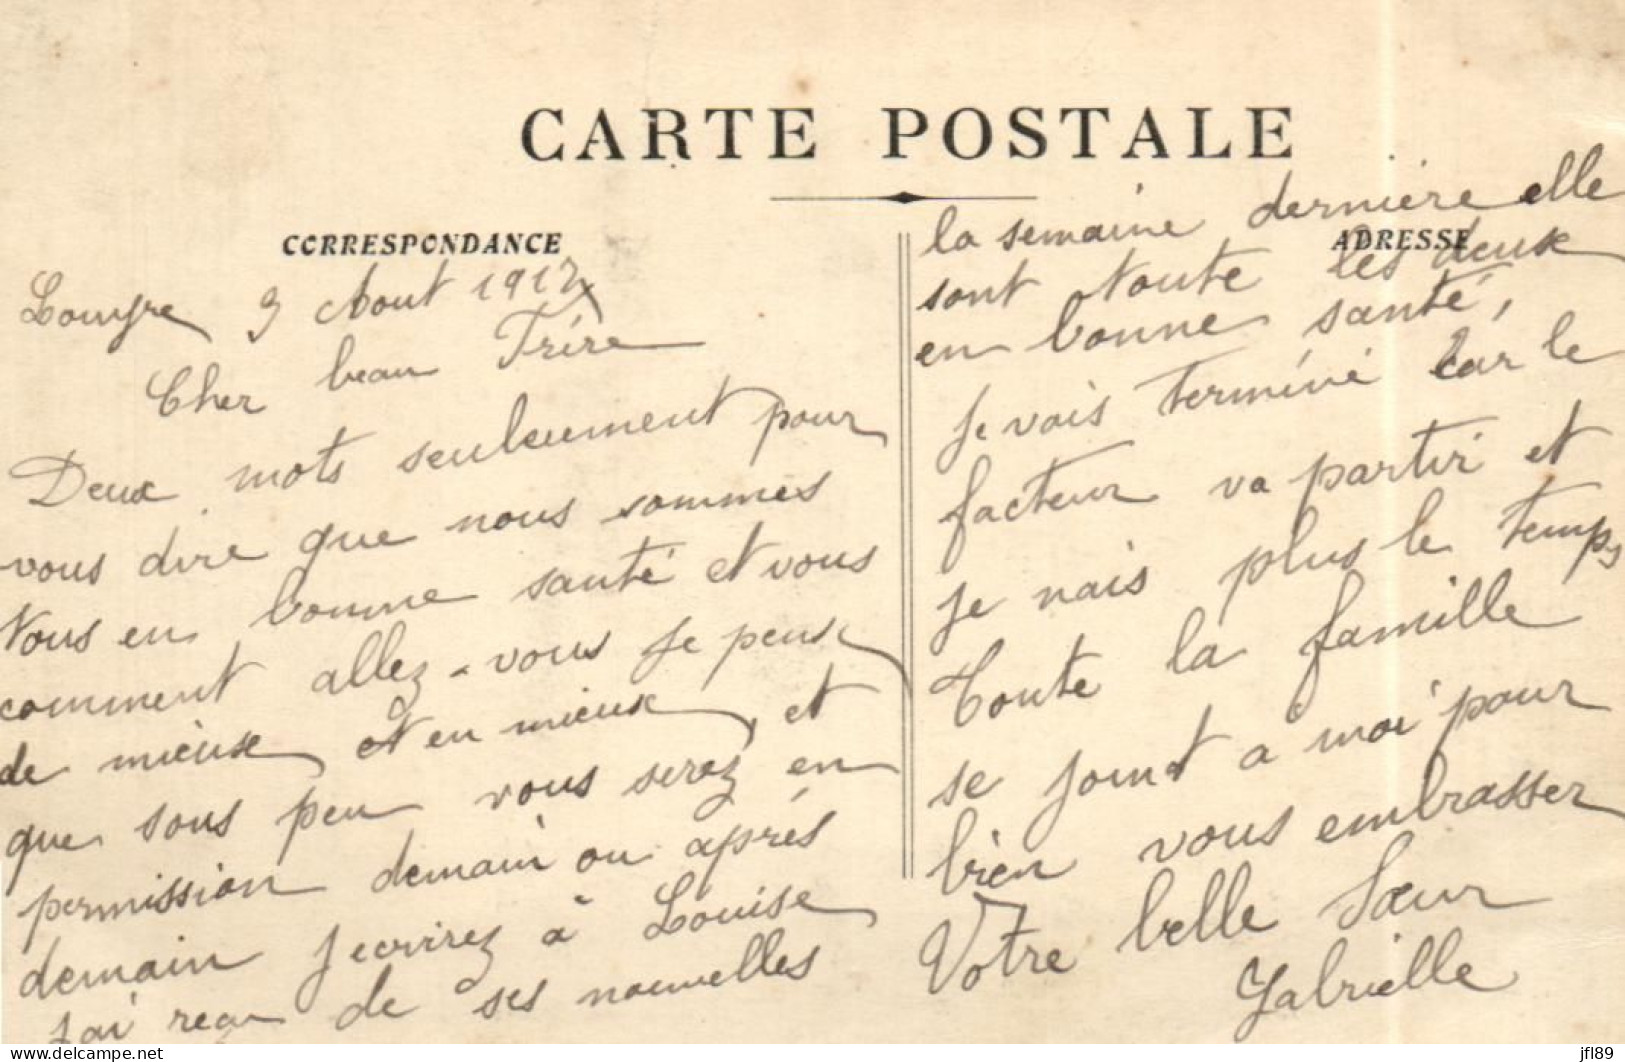 CARTE POSTALE
CORRESPONDANCE
ADRESSE
3 Aout 1917
Cher beau Frére
Deux mots seuleument pour
vous dire que nous sommes
tous en bonne santé et vous
comment allez-vous je peux
de mieux et en mieux, et
que sous peu vous serez en
permission demain ou aprés
demain jecrirez à Louise
jai reçu de ses nouvelles
la semaine derniére elle
sont toute les deux
en bonne santé,
je vais terminé car le
facteur va partir et
je nais plus le temps
Toute la famille
se joint a moi pour
bien vous embrasser
Votre belle Sœur
Gabrielle
delcampe.net
jfl89